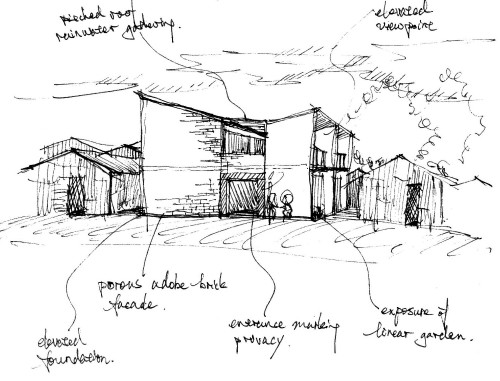 pitched roof
rainwater gathering.
elevated
viewpoint
porous adobe brick
facade.
elevated
foundation.
entrance marking
privacy.
exposure of
linear garden.